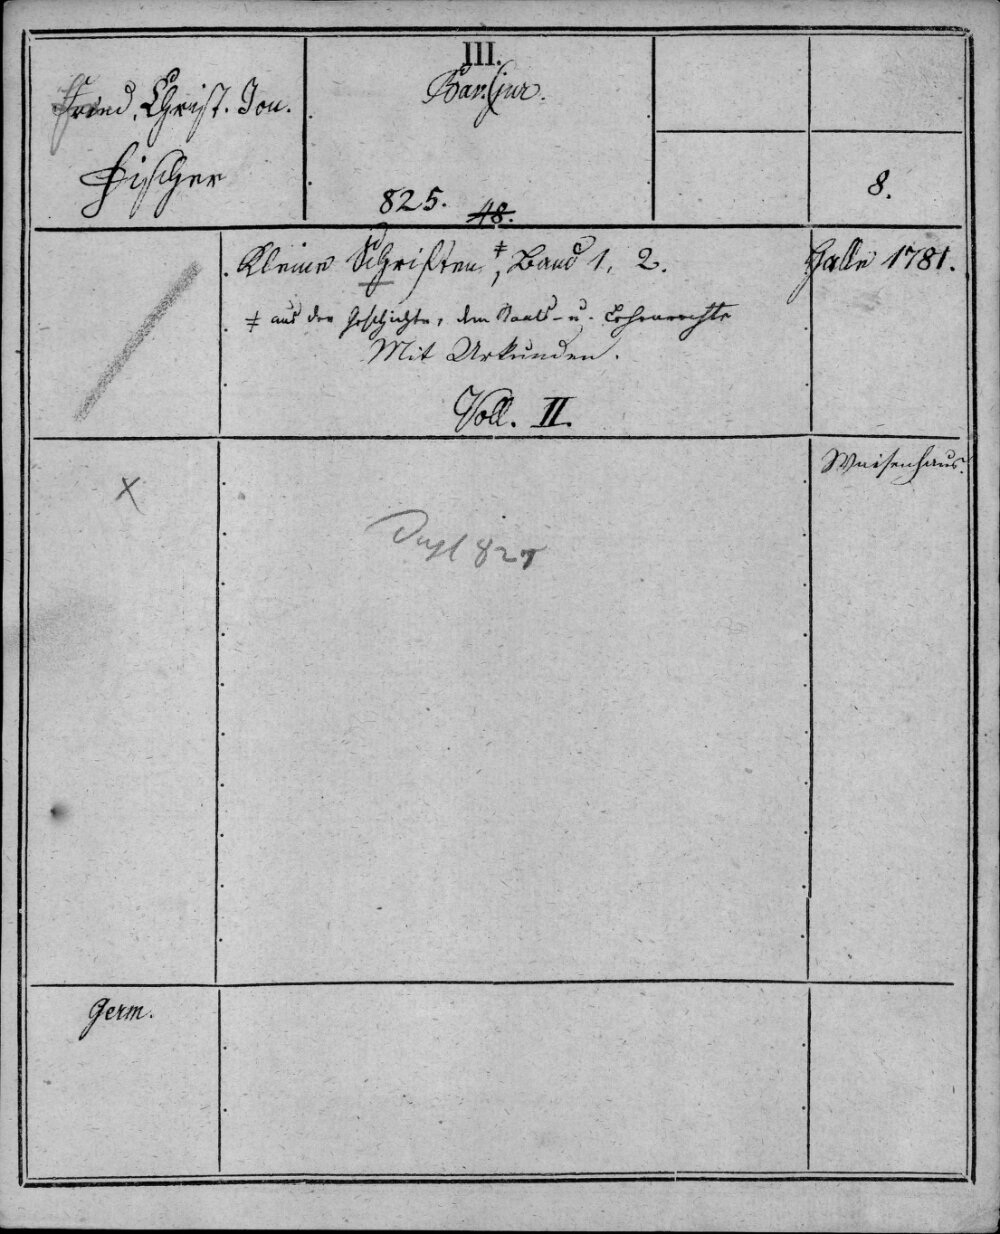 Fried. Christ. Jon.
Fischer
III.
Bav. jur.
825. 48.
8.
Kleine Schriften ‡, Band 1. 2.
‡ aus der Geschichte, dem Staats- u. Lehenrechte
Mit Urkunden.
Voll. II.
Halle 1781.
Waisenhaus.
X
Dupl 825
Germ.